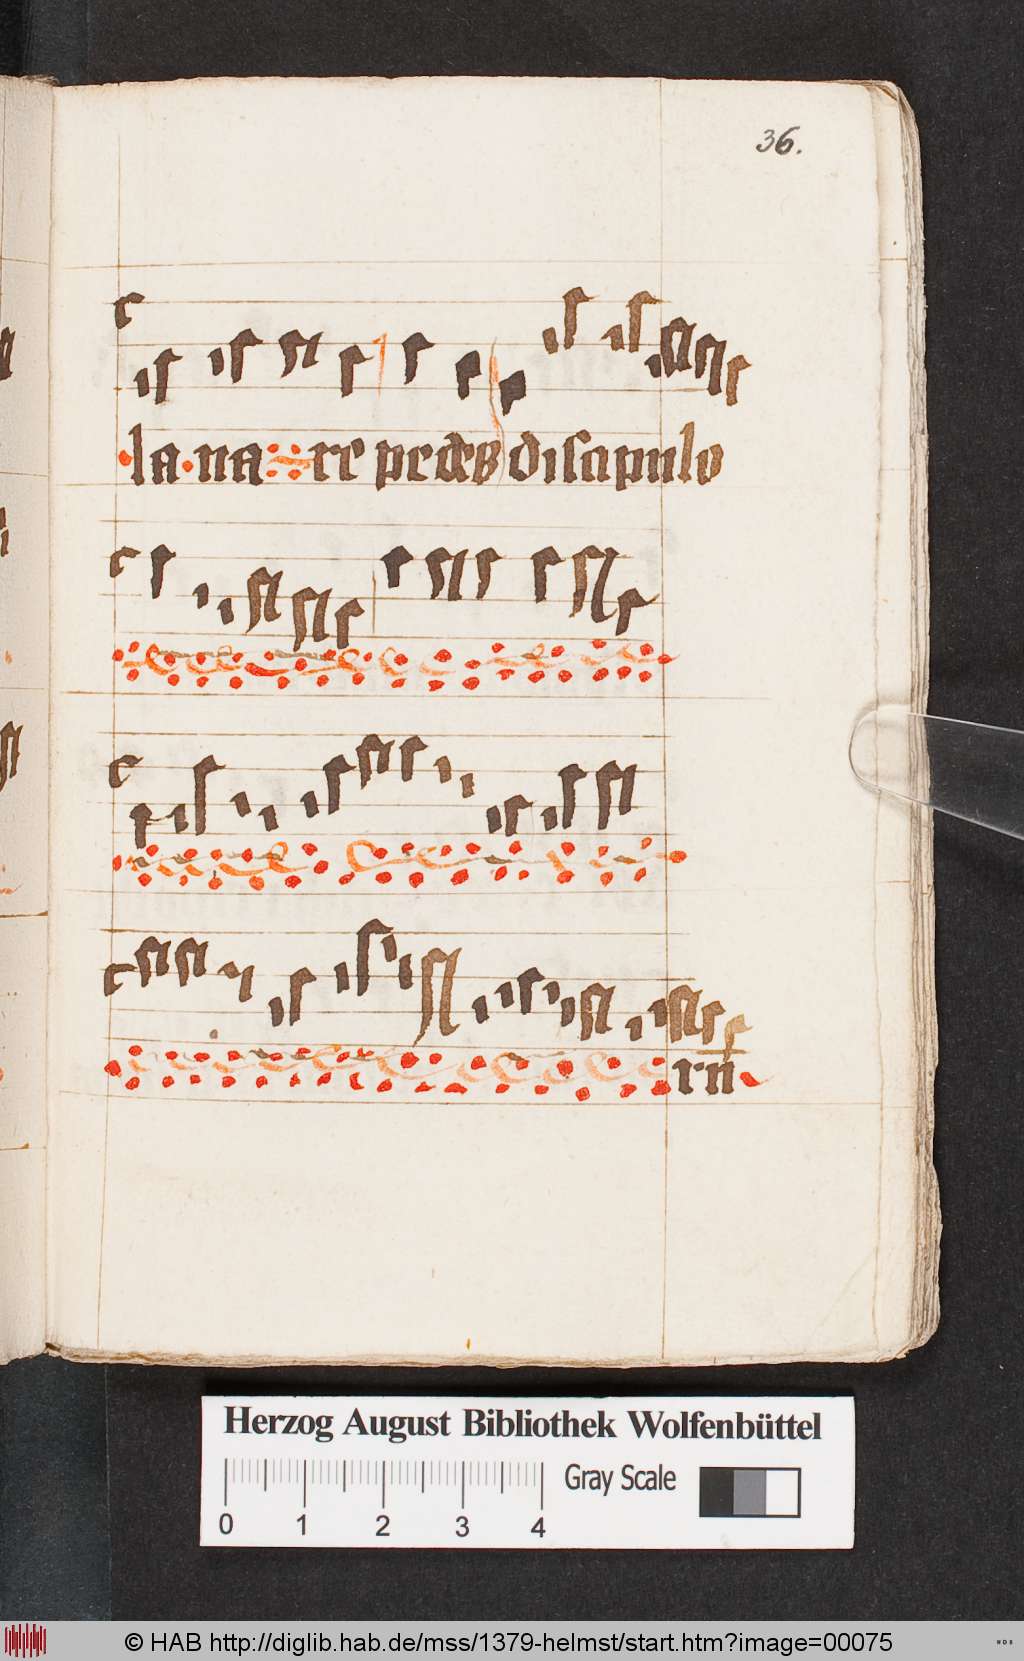 36.
la na re pedes discipulo
rū
Herzog August Bibliothek Wolfenbüttel
Gray Scale
0 1 2 3 4
© HAB http://diglib.hab.de/mss/1379-helmst/start.htm?image=00075